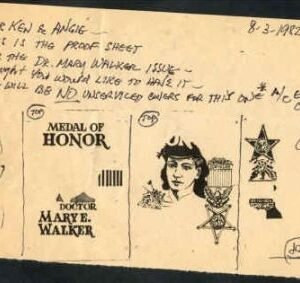 R KEN & ANGIE - 8-3-1982
IS IS THE PROOF SHEET
THE DR. MARY WALKER ISSUE -
YOU WOULD LIKE TO HAVE IT -
WILL BE NO UNSERVICED COVERS FOR THIS ONE * A/C E
TOP
MEDAL OF
HONOR
DOCTOR
MARY E.
WALKER